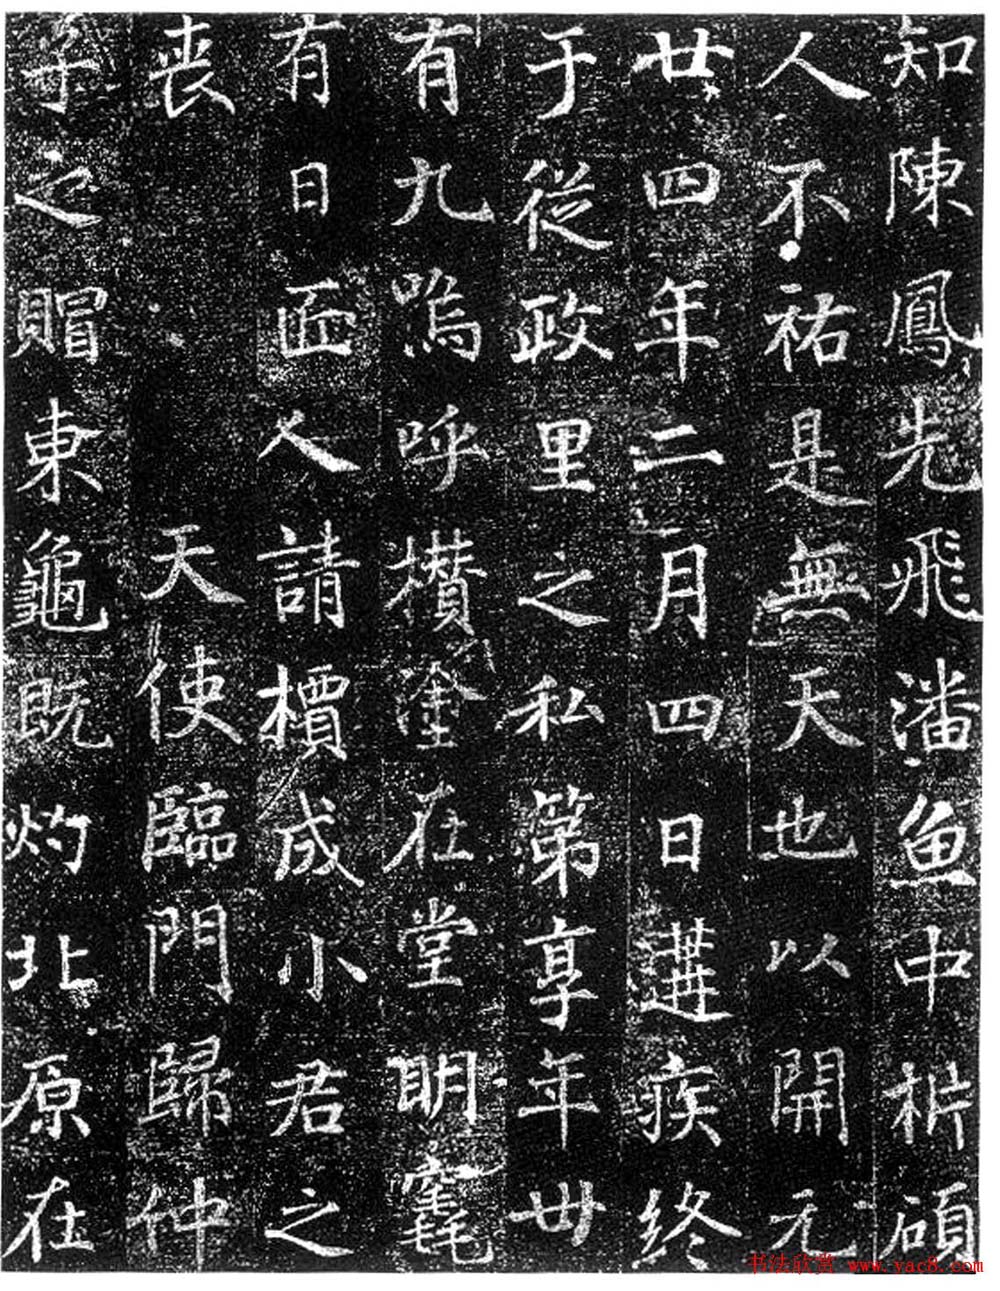 知陳鳳先飛潘魚中析碩
人不祐是無天也以開元
廿四年二月四日遘疾終
于從政里之私第享年卌
有九嗚呼攢塗在堂明窀
有日匠人請檟成小君之
喪 天使臨門歸仲
子之賵東龜既灼北原在
书法欣赏 www.yac8.com